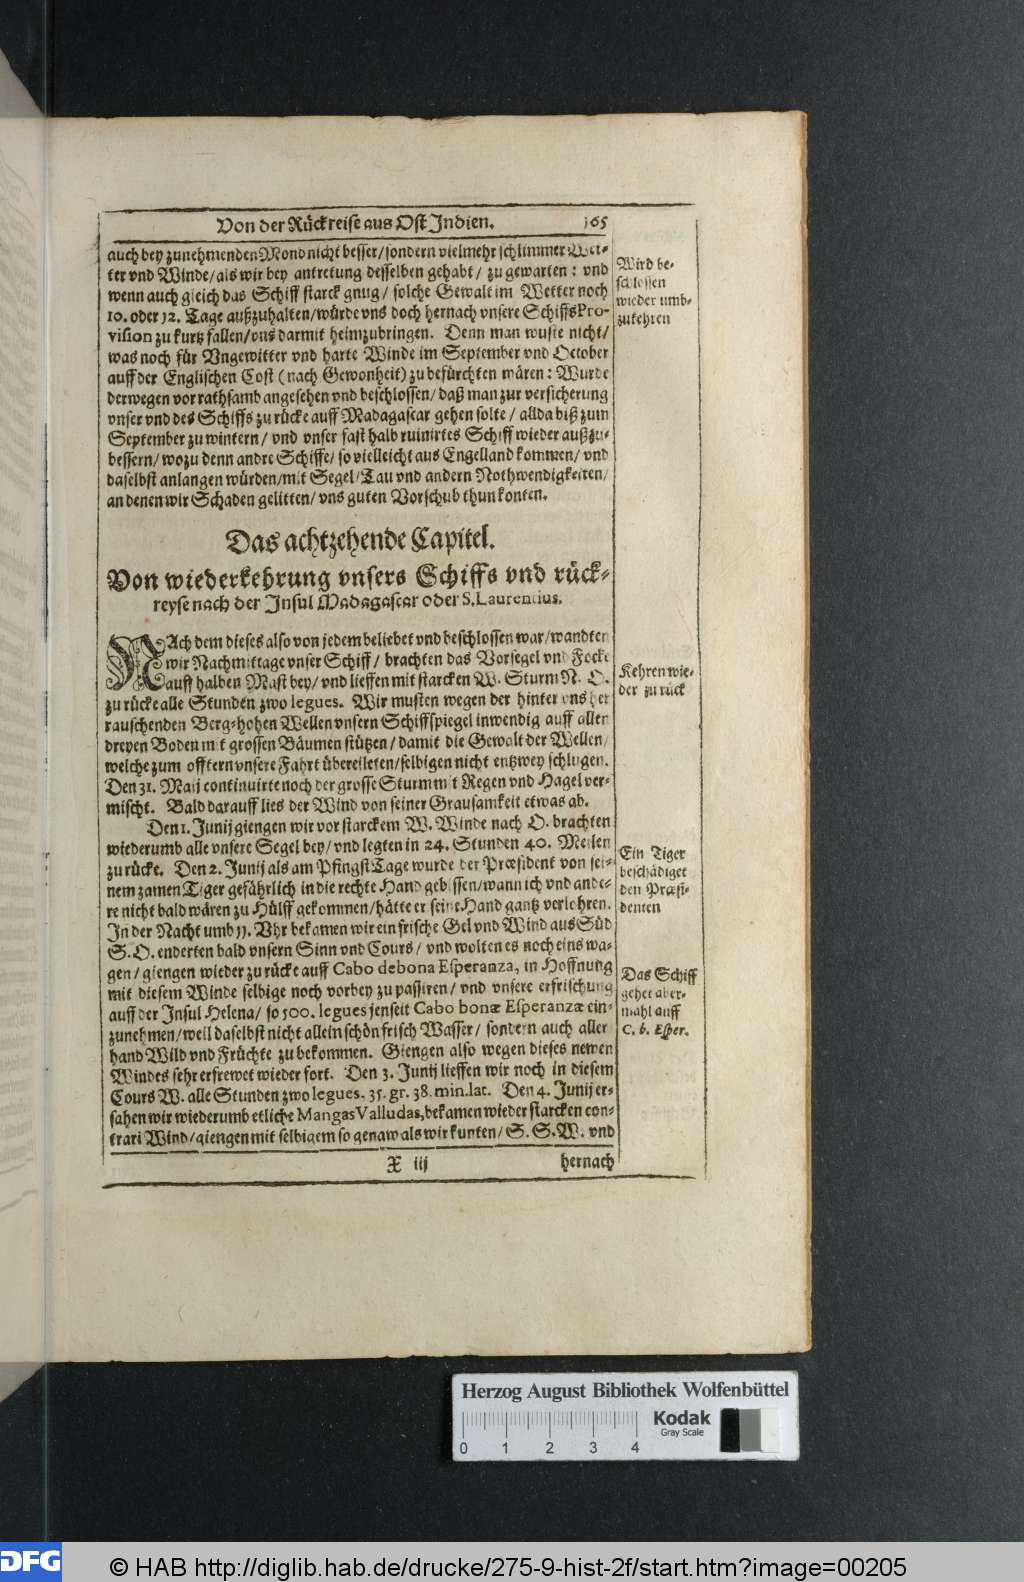 Von der Rückreise aus Ost Jndien. 165
auch bey zunehmenden Mond nicht besser/sondern vielmehr schlimmer Wet-
ter vnd Winde/als wir bey antretung desselben gehabt/ zu gewarten: vnd
wenn auch gleich das Schiff starck gnug/ solche Gewalt im Wetter noch
10. oder 12. Tage außzuhalten/würde vns doch hernach vnsere SchiffsPro-
vision zu kurtz fallen/vns darmit heimzubringen. Denn man wuste nicht/
was noch für Vngewitter vnd harte Winde im September vnd October
auff der Englischen Cost (nach Gewonheit) zu befürchten wären: Wurde
derwegen vor rathsamb angesehen vnd beschlossen/ daß man zur versicherung
vnser vnd des Schiffs zu rücke auff Madagascar gehen solte/ allda biß zum
September zu wintern/ vnd vnser fast halb ruinirtes Schiff wieder außzu-
bessern/ wozu denn andre Schiffe/ so vielleicht aus Engelland kommen/ vnd
daselbst anlangen würden/mit Segel/Tau vnd andern Nothwendigkeiten/
an denen wir Schaden gelitten/ vns guten Vorschub thun konten.
Wird be-
schlossen
wieder umb-
zukehren
Das achtzehende Capitel.
Von wiederkehrung vnsers Schiffs vnd rück-
reyse nach der Jnsul Madagascar oder S. Laurentius.
NAch dem dieses also von jedem beliebet vnd beschlossen war/wandten
wir Nachmittage vnser Schiff/ brachten das Vorsegel vnd Focke
auff halben Mast bey/ vnd lieffen mit starcken W. Sturm N. O.
zu rücke alle Stunden zwo legues. Wir musten wegen der hinter vns her
rauschenden Berg-hohen Wellen vnsern Schiffspiegel inwendig auff allen
dreyen Boden mit grossen Bäumen stützen/ damit die Gewalt der Wellen/
welche zum offtern vnsere Fahrt übereileten/selbigen nicht entzwey schlugen.
Den 31. Maij continuirte noch der grosse Sturm mit Regen vnd Hagel ver-
mischt. Bald darauff lies der Wind von seiner Grausamkeit etwas ab.
Kehren wie-
der zu rück
Den 1. Junij giengen wir vor starckem W. Winde nach O. brachten
wiederumb alle vnsere Segel bey/ vnd legten in 24. Stunden 40. Meilen
zu rücke. Den 2. Junij als am PfingstTage wurde der Præsident von sei-
nem zamen Tiger gefährlich in die rechte Hand gebissen/wann ich vnd ande-
re nicht bald wären zu Hülff gekommen/hätte er seine Hand gantz verlohren.
Jn der Nacht umb 11. Vhr bekamen wir ein frische Gel vnd Wind aus Süd
S. O. enderten bald vnsern Sinn vnd Cours/ vnd wolten es noch eins wa-
gen/ giengen wieder zu rücke auff Cabo de bona Esperanza, in Hoffnung
mit diesem Winde selbige noch vorbey zu passiren/ vnd vnsere erfrischung
auff der Jnsul Helena/ so 500. legues jenseit Cabo bonæ Esperanzæ ein-
zunehmen/weil daselbst nicht allein schön frisch Wasser/ sondern auch aller
hand Wild vnd Früchte zu bekommen. Giengen also wegen dieses newen
Windes sehr erfrewet wieder fort. Den 3. Junij lieffen wir noch in diesem
Cours W. alle Stunden zwo legues. 35. gr. 38. min. lat. Den 4. Junij er-
sahen wir wiederumb etliche Mangas Valludas, bekamen wieder starcken con-
trari Wind/giengen mit selbigem so genaw als wir kunten/ S. S. W. vnd
Ein Tiger
beschädiget
den Præsi-
denten
Das Schiff
gehet aber-
mahl auff
C. b. Esper.
X iij hernach
Herzog August Bibliothek Wolfenbüttel
Kodak
Gray Scale
0 1 2 3 4
DFG © HAB http://diglib.hab.de/drucke/275-9-hist-2f/start.htm?image=00205